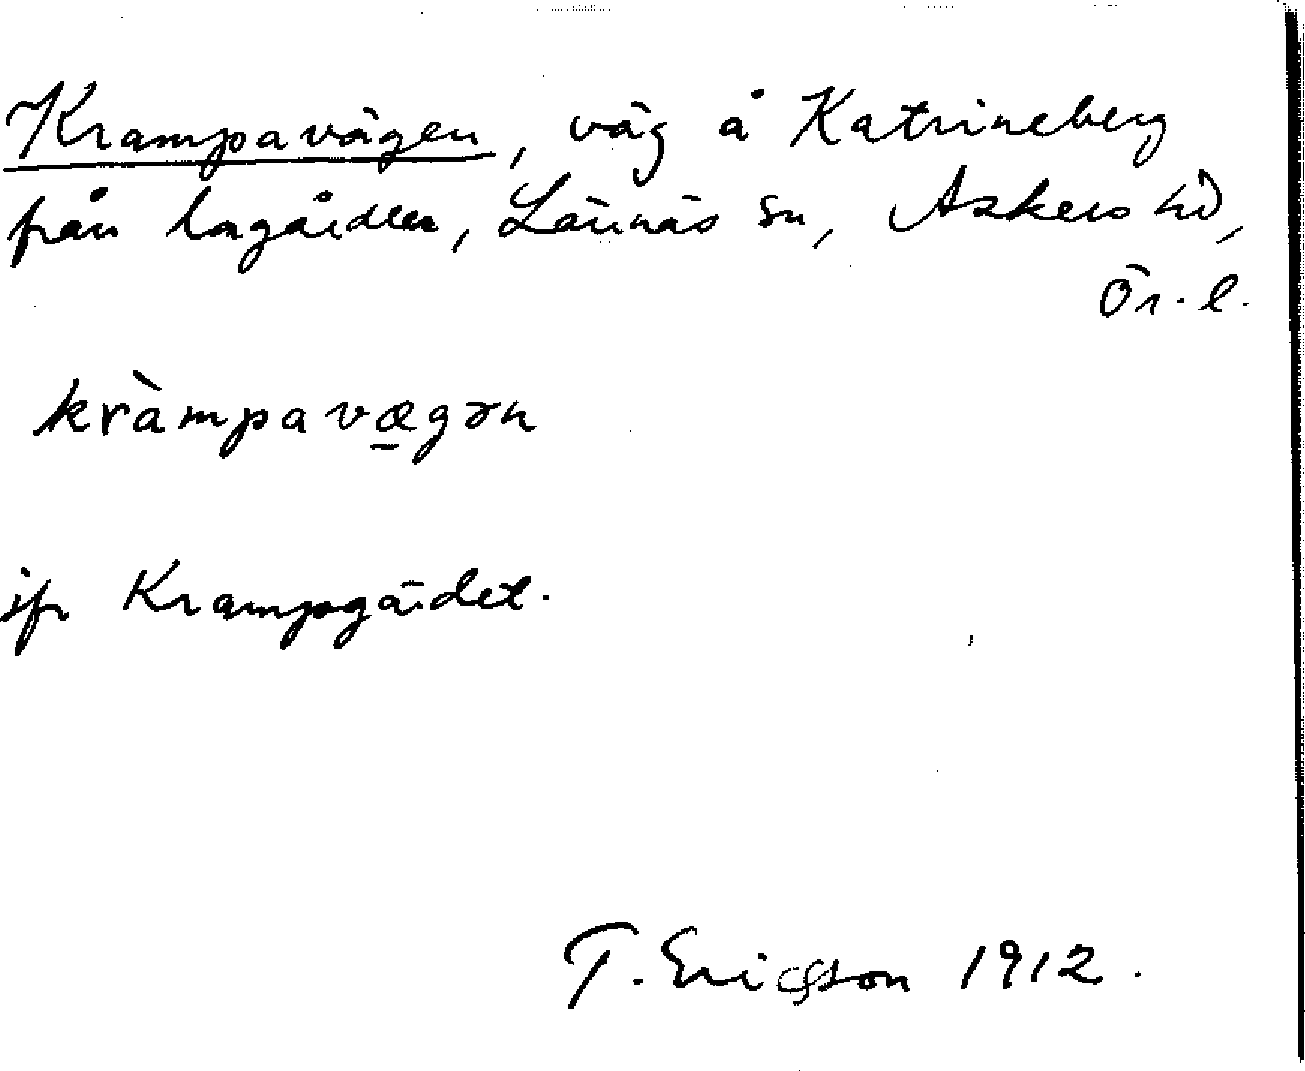 Krampavägen, väg å Katrineberg
från lagården, Lännäs sn, Askers hd,
Ör. l.
kràmpavæ̱gən
jfr Krampgärdet.
T. Ericsson 1912.